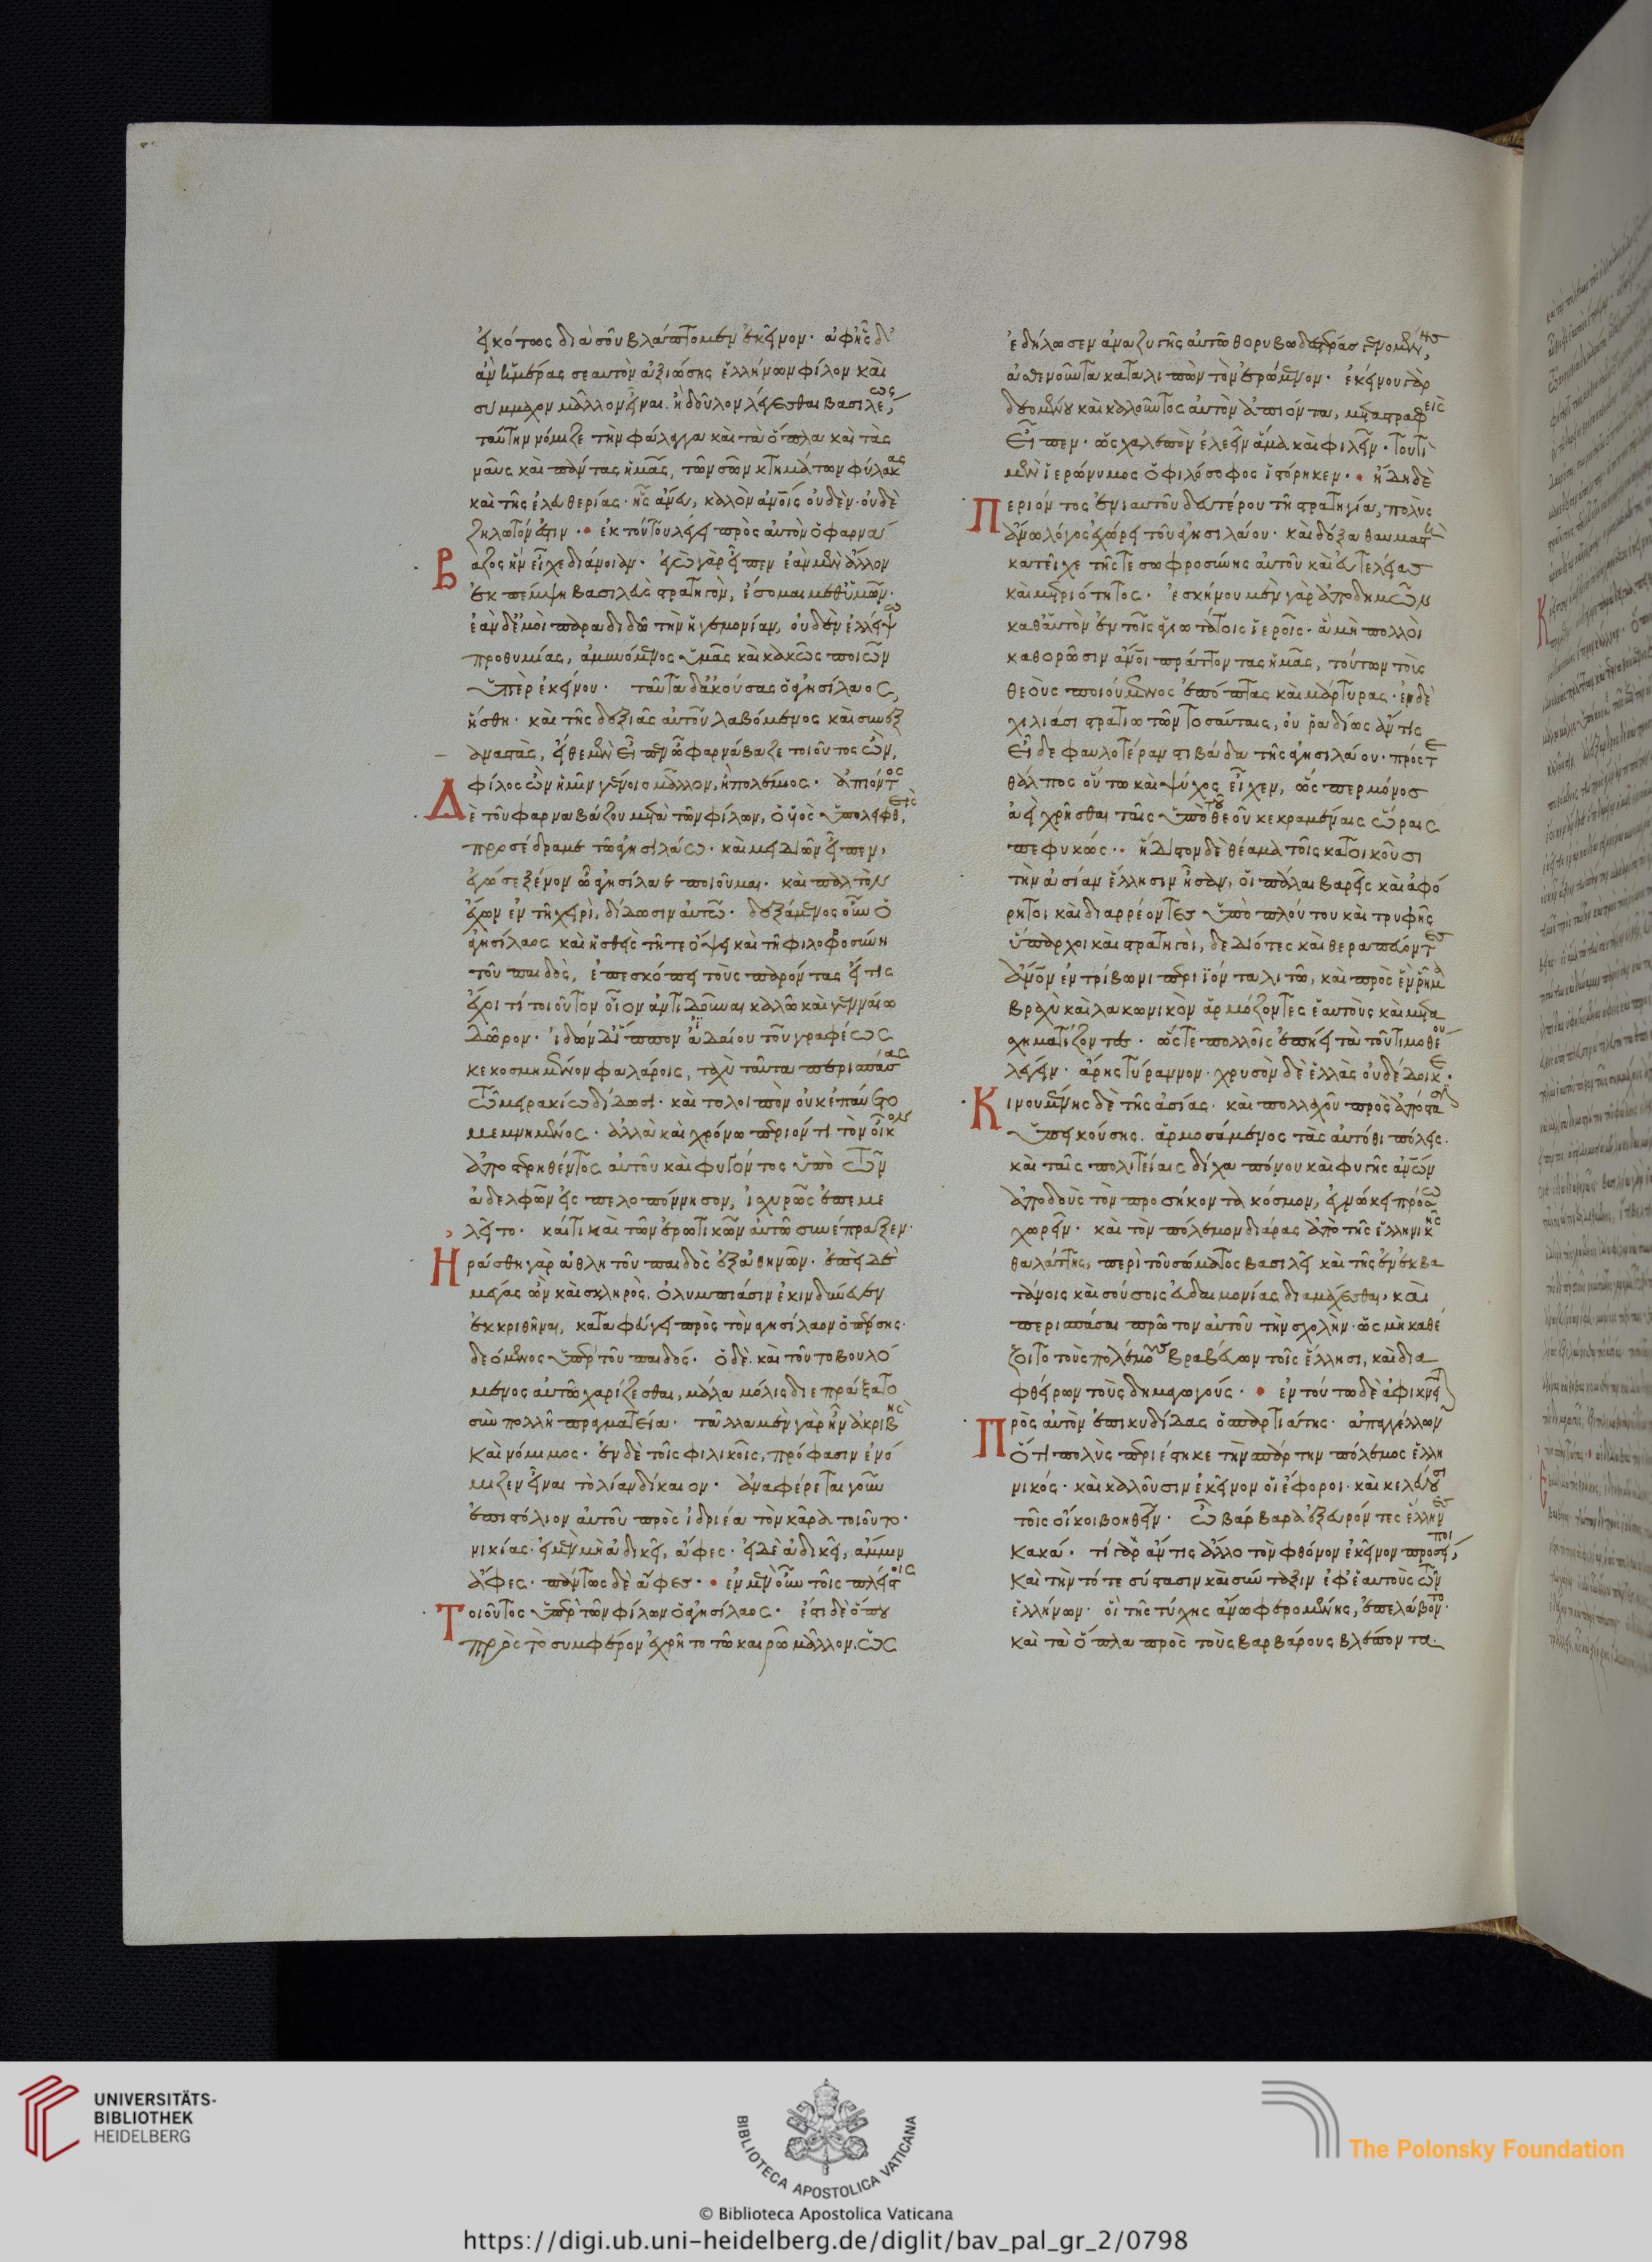 εἰκότως διὰ σοῦ βλάπτομεν ἐκεῖνον· ἀφ' ἧς δ'
ἂν ἡμέρας σεαυτὸν ἀξιώσης ἑλλήνων φίλον καὶ
σύμμαχον μᾶλλον εἶναι. ἢ δοῦλον λέγεσθαι βασιλέως,
ταύτην νόμιζε τὴν φάλαγγα καὶ τὰ ὅπλα καὶ τὰς
ναῦς καὶ πάντας ἡμᾶς, τῶν σῶν κτημάτων φύλακας
καὶ τῆς ἐλευθερίας· ἧς ἄνευ, καλὸν ἀνοις οὐδὲν· οὐδὲ
ζηλωτόν ἐστιν· ἐκ τούτου λέγει πρὸς αὐτὸν ὁ φαρνά
Βαζος ἣν εἶχε διάνοιαν· ἐγὼ γὰρ εἶπεν ἐὰν μὲν ἄλλον
ἐκπέμψη βασιλεὺς στρατηγὸν, ἔσομαι μεθ' ὑμῶν·
ἐὰν δ' ἐμοὶ παραδιδῶ τὴν ἡγεμονίαν, οὐδὲν ἐλλείψω
προθυμίας, ἀμυνόμενος ὑμᾶς καὶ κακῶς ποιῶν
ὑπὲρ ἐκείνου· ταῦτα δ' ἀκούσας ὁ ἀγησίλαος,
ἥσθη· καὶ τῆς δεξιᾶς αὐτοῦ λαβόμενος καὶ συνεξ
αναστὰς, εἴθε μὲν εἶπεν ὦ φαρνάβαζε τοιοῦτος ὢν,
φίλος ὢν ἡμῖν γένοιο μᾶλλον, ἢ πολέμιος· ἀπιόντος
Δὲ τοῦ φαρναβάζου μετὰ τῶν φίλων, ὁ υἱὸς ὑπολειφθεὶς,
προσέδραμε τῶ ἀγησιλάω· καὶ μειδιῶν εἶπεν,
ἐγώ σε ξένον ὦ ἀγησίλαε ποιοῦμαι· καὶ παλτὸν
ἔχων ἐν τῆ χειρὶ, δίδωσιν αὐτῶ· δεξάμενος οὖν ὁ
ἀγησίλαος καὶ ἡσθεὶς τῆ τε ὄψει καὶ τῆ φιλοφροσύνη
τοῦ παιδὸς, ἐπεσκόπει τοὺς παρόντας εἴ τις
ἔχοι τί τοιοῦτον οἷον ἀντιδοῦναι καλῶ καὶ γενναίω
δῶρον· ἰδὼν δ' ἵππον ἀδαίου τοῦ γραφέως
κεκοσμημένον φαλάροις, ταχὺ ταῦτα περισπάσας
τῶ μειρακίω δίδωσι· καὶ τολοιπὸν οὐκ ἐπαύετο
μεμνημένος· ἀλλὰ καὶ χρόνω περιόντι τὸν οἶκον
ἀποστερηθέντος αὐτοῦ καὶ φυγόντος ὑπὸ τῶν
ἀδελφῶν εἰς πελοπόννησον, ἰσχυρῶς ἐπεμε
λεῖτο· καί τι καὶ τῶν ἐρωτικῶν αὐτῶ συνέπραξεν·
Ηράσθη γὰρ ἀθλητοῦ παιδὸς ἐξ ἀθηνῶν· ἐπεὶ δὲ
μέγας ὢν καὶ σκληρὸς, ὀλυμπιάσιν ἐκινδύνευεν
ἐκκριθῆναι, καταφεύγει πρὸς τὸν ἀγησίλαον ὁ πέρσης·
δεόμενος ὑπὲρ τοῦ παιδός· ὁ δὲ· καὶ τοῦτο βουλό
μενος αὐτῶ χαρίζεσθαι, μάλα μόλις διεπράξατο
σὺν πολλῆ πραγματεία· τἄλλα μὲν γὰρ ἦν ἀκριβὴς
καὶ νόμιμος· ἐν δὲ τοῖς φιλικοῖς, πρόφασιν ἐνό
μιζεν εἶναι τὸ λίαν δίκαιον· ἀναφέρεται γοῦν
ἐπιστόλιον αὐτοῦ πρὸς ἱδριέα τὸν κᾶρα τοιοῦτο·
νικίας· εἰ μὲν μὴ ἀδικεῖ, ἄφες· εἰ δὲ ἀδικεῖ, ἄμμιν
ἄφες· πάντως δὲ ἄφες· ἐν μὲν οὖν τοῖς πλείστοις
Τοιοῦτος ὑπὲρ τῶν φίλων ὁ ἀγησίλαος· ἔστι δὲ ὅπου
πρὸς τὸ συμφέρον ἐχρῆτο τῶ καιρῶ μᾶλλον. ὡς
ἐδήλωσεν ἀναζυγῆς αὐτῶ θορυβωδεστέρας γενομένης,
ἀσθενοῦντα καταλιπὼν τὸν ἐρώμενον· ἐκείνου γὰρ
δεομένου καὶ καλοῦντος αὐτὸν ἀπιόντα, μεταστραφεὶς
εἶπεν· ὡς χαλεπὸν ἐλεεῖν ἅμα καὶ φιλεῖν· τουτὶ
μὲν ἱερώνυμος ὁ φιλόσοφος ἱστόρηκεν· ἤδη δὲ
Περιόντος ἐνιαυτοῦ δευτέρου τῆ στρατηγία, πολὺς
ἄνω λόγος ἐχώρει τοῦ ἀγησιλάου· καὶ δόξα θαυμαστὴ
κατεῖχε τῆς τε σωφροσύνης αὐτοῦ καὶ εὐτελείας
καὶ μετριότητος· ἐσκήνου μὲν γὰρ ἀποδημῶν
καθ' αὑτὸν ἐν τοῖς ἁγιωτάτοις ἱεροῖς· ἃ μὴ πολλοὶ
καθορῶσιν ἄνοι πράττοντας ἡμᾶς, τούτων τοὺς
θεοὺς ποιούμενος ἐπόπτας καὶ μάρτυρας· ἐν δὲ
χιλιάσι στρατιωτῶν τοσαύταις, οὐ ῥαδίως ἄν τις
εἶδε φαυλοτέραν στιβάδα τῆς ἀγησιλάου· πρός τε
θάλπος οὕτω καὶ ψύχος εἶχεν, ὥσπερ μόνος
ἀεὶ χρῆσθαι ταῖς ὑπὸ τοῦ θεοῦ κεκραμέναις ὥραις
πεφυκώς· ἥδιστον δὲ θέαμα τοῖς κατοικοῦσι
τὴν ἀσίαν ἕλλησιν ἦσαν, οἱ πάλαι βαρεῖς καὶ ἀφό
ρητοι καὶ διαρρέοντες ὑπὸ πλούτου καὶ τρυφῆς
ὕπαρχοι καὶ στρατηγοὶ, δεδιότες καὶ θεραπεύοντες
ἄνον ἐν τρίβωνι περιϊόντα λιτῶ, καὶ πρὸς ἓν ῥῆμα
βραχὺ καὶ λακωνικὸν ἁρμόζοντες ἑαυτοὺς καὶ μετα
σχηματίζοντες· ὥστε πολλοῖς ἐπήει τὰ τοῦ τιμοθέου
λέγειν· ἄρης τύραννον· χρυσὸν δὲ ἑλλὰς οὐ δέδοικε·
Κινουμένης δὲ τῆς ἀσίας· καὶ πολλαχοῦ πρὸς ἀπόστασιν
ὑπεικούσης. ἁρμοσάμενος τὰς αὐτόθι πόλεις·
καὶ ταῖς πολιτείαις δίχα πόνου καὶ φυγῆς ἀνων
ἀποδοὺς τὸν προσήκοντα κόσμον, ἐγνώκει πρόσω
χωρεῖν· καὶ τὸν πόλεμον διάρας ἀπὸ τῆς ἑλληνικῆς
θαλάττης, περὶ τοῦ σώματος βασιλεῖ καὶ τῆς ἐν ἐκβα
τάνοις καὶ σούσοις εὐδαιμονίας διαμάχεσθαι, καὶ
περισπάσαι πρῶτον αὐτοῦ τὴν σχολὴν· ὡς μὴ καθέ
ζοιτο τοὺς πολέμους βραβεύων τοῖς ἕλλησι, καὶ δια
φθείρων τοὺς δημαγωγούς· ἐν τούτω δὲ ἀφικνεῖται
Πρὸς αὐτὸν ἐπικυδίδας ὁ σπαρτιάτης· ἀπαγγέλλων
ὅτι πολὺς περιέστηκε τὴν σπάρτην πόλεμος ἑλλη
νικός· καὶ καλοῦσιν ἐκεῖνον οἱ ἔφοροι· καὶ κελεύουσι
τοῖς οἴκοι βοηθεῖν· ὦ βάρβαρα ἐξευρόντες ἕλληνες
κακά· τί γὰρ ἄν τις ἄλλο τὸν φθόνον ἐκεῖνον προσείποι,
καὶ τὴν τότε σύστασιν καὶ σύνταξιν ἐφ' ἑαυτοὺς τῶν
ἑλλήνων· οἳ τῆς τύχης ἄνω φερομένης, ἐπελάβοντο·
καὶ τὰ ὅπλα πρὸς τοὺς βαρβάρους βλέποντα·
UNIVERSITÄTS-
BIBLIOTHEK
HEIDELBERG
BIBLIOTECA APOSTOLICA VATICANA
The Polonsky Foundation
© Biblioteca Apostolica Vaticana
https://digi.ub.uni-heidelberg.de/diglit/bav_pal_gr_2/0798